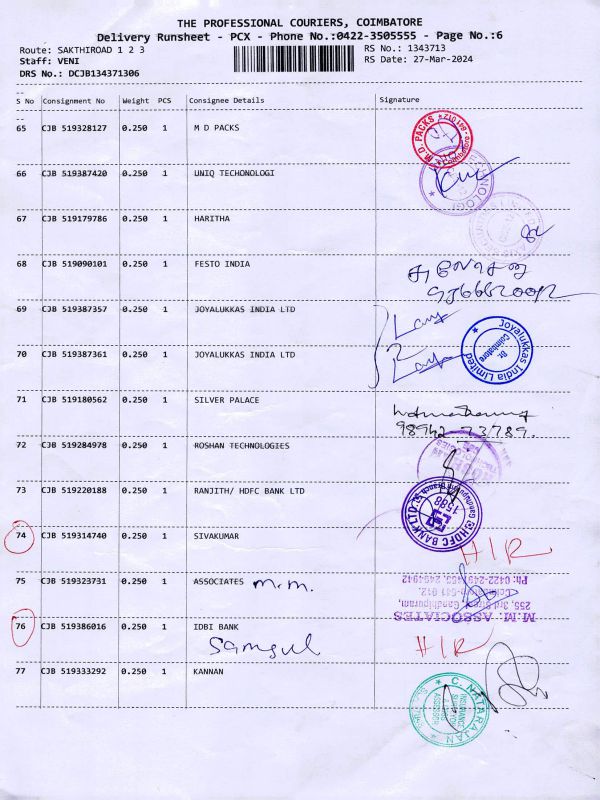 THE PROFESSIONAL COURIERS, COIMBATORE
Delivery Runsheet - PCX - Phone No.:0422-3505555 - Page No.:6
Route: SAKTHIROAD 1 2 3 RS No.: 1343713
Staff: VENI RS Date: 27-Mar-2024
DRS No.: DCJB134371306
S No Consignment No Weight PCS Consignee Details Signature
65 CJB 519328127 0.250 1 M D PACKS
M.D. PACKS
66 CJB 519387420 0.250 1 UNIQ TECHONOLOGI
67 CJB 519179786 0.250 1 HARITHA
68 CJB 519090101 0.250 1 FESTO INDIA
69 CJB 519387357 0.250 1 JOYALUKKAS INDIA LTD
70 CJB 519387361 0.250 1 JOYALUKKAS INDIA LTD
Joyalukkas India Limited
Br.
Coimbatore
71 CJB 519180562 0.250 1 SILVER PALACE
98942 73789.
72 CJB 519284978 0.250 1 ROSHAN TECHNOLOGIES
73 CJB 519220188 0.250 1 RANJITH/ HDFC BANK LTD
HDFC BANK LTD
1588
74 CJB 519314740 0.250 1 SIVAKUMAR
H/R
75 CJB 519323731 0.250 1 ASSOCIATES M.M.
M.M. ASSOCIATES
255, 3rd Street, Gandhipuram,
Coimbatore-641 012.
76 CJB 519386016 0.250 1 IDBI BANK
H/R
77 CJB 519333292 0.250 1 KANNAN
C. NATARAJAN
INSURANCE
SURVEYOR
ASSESSOR